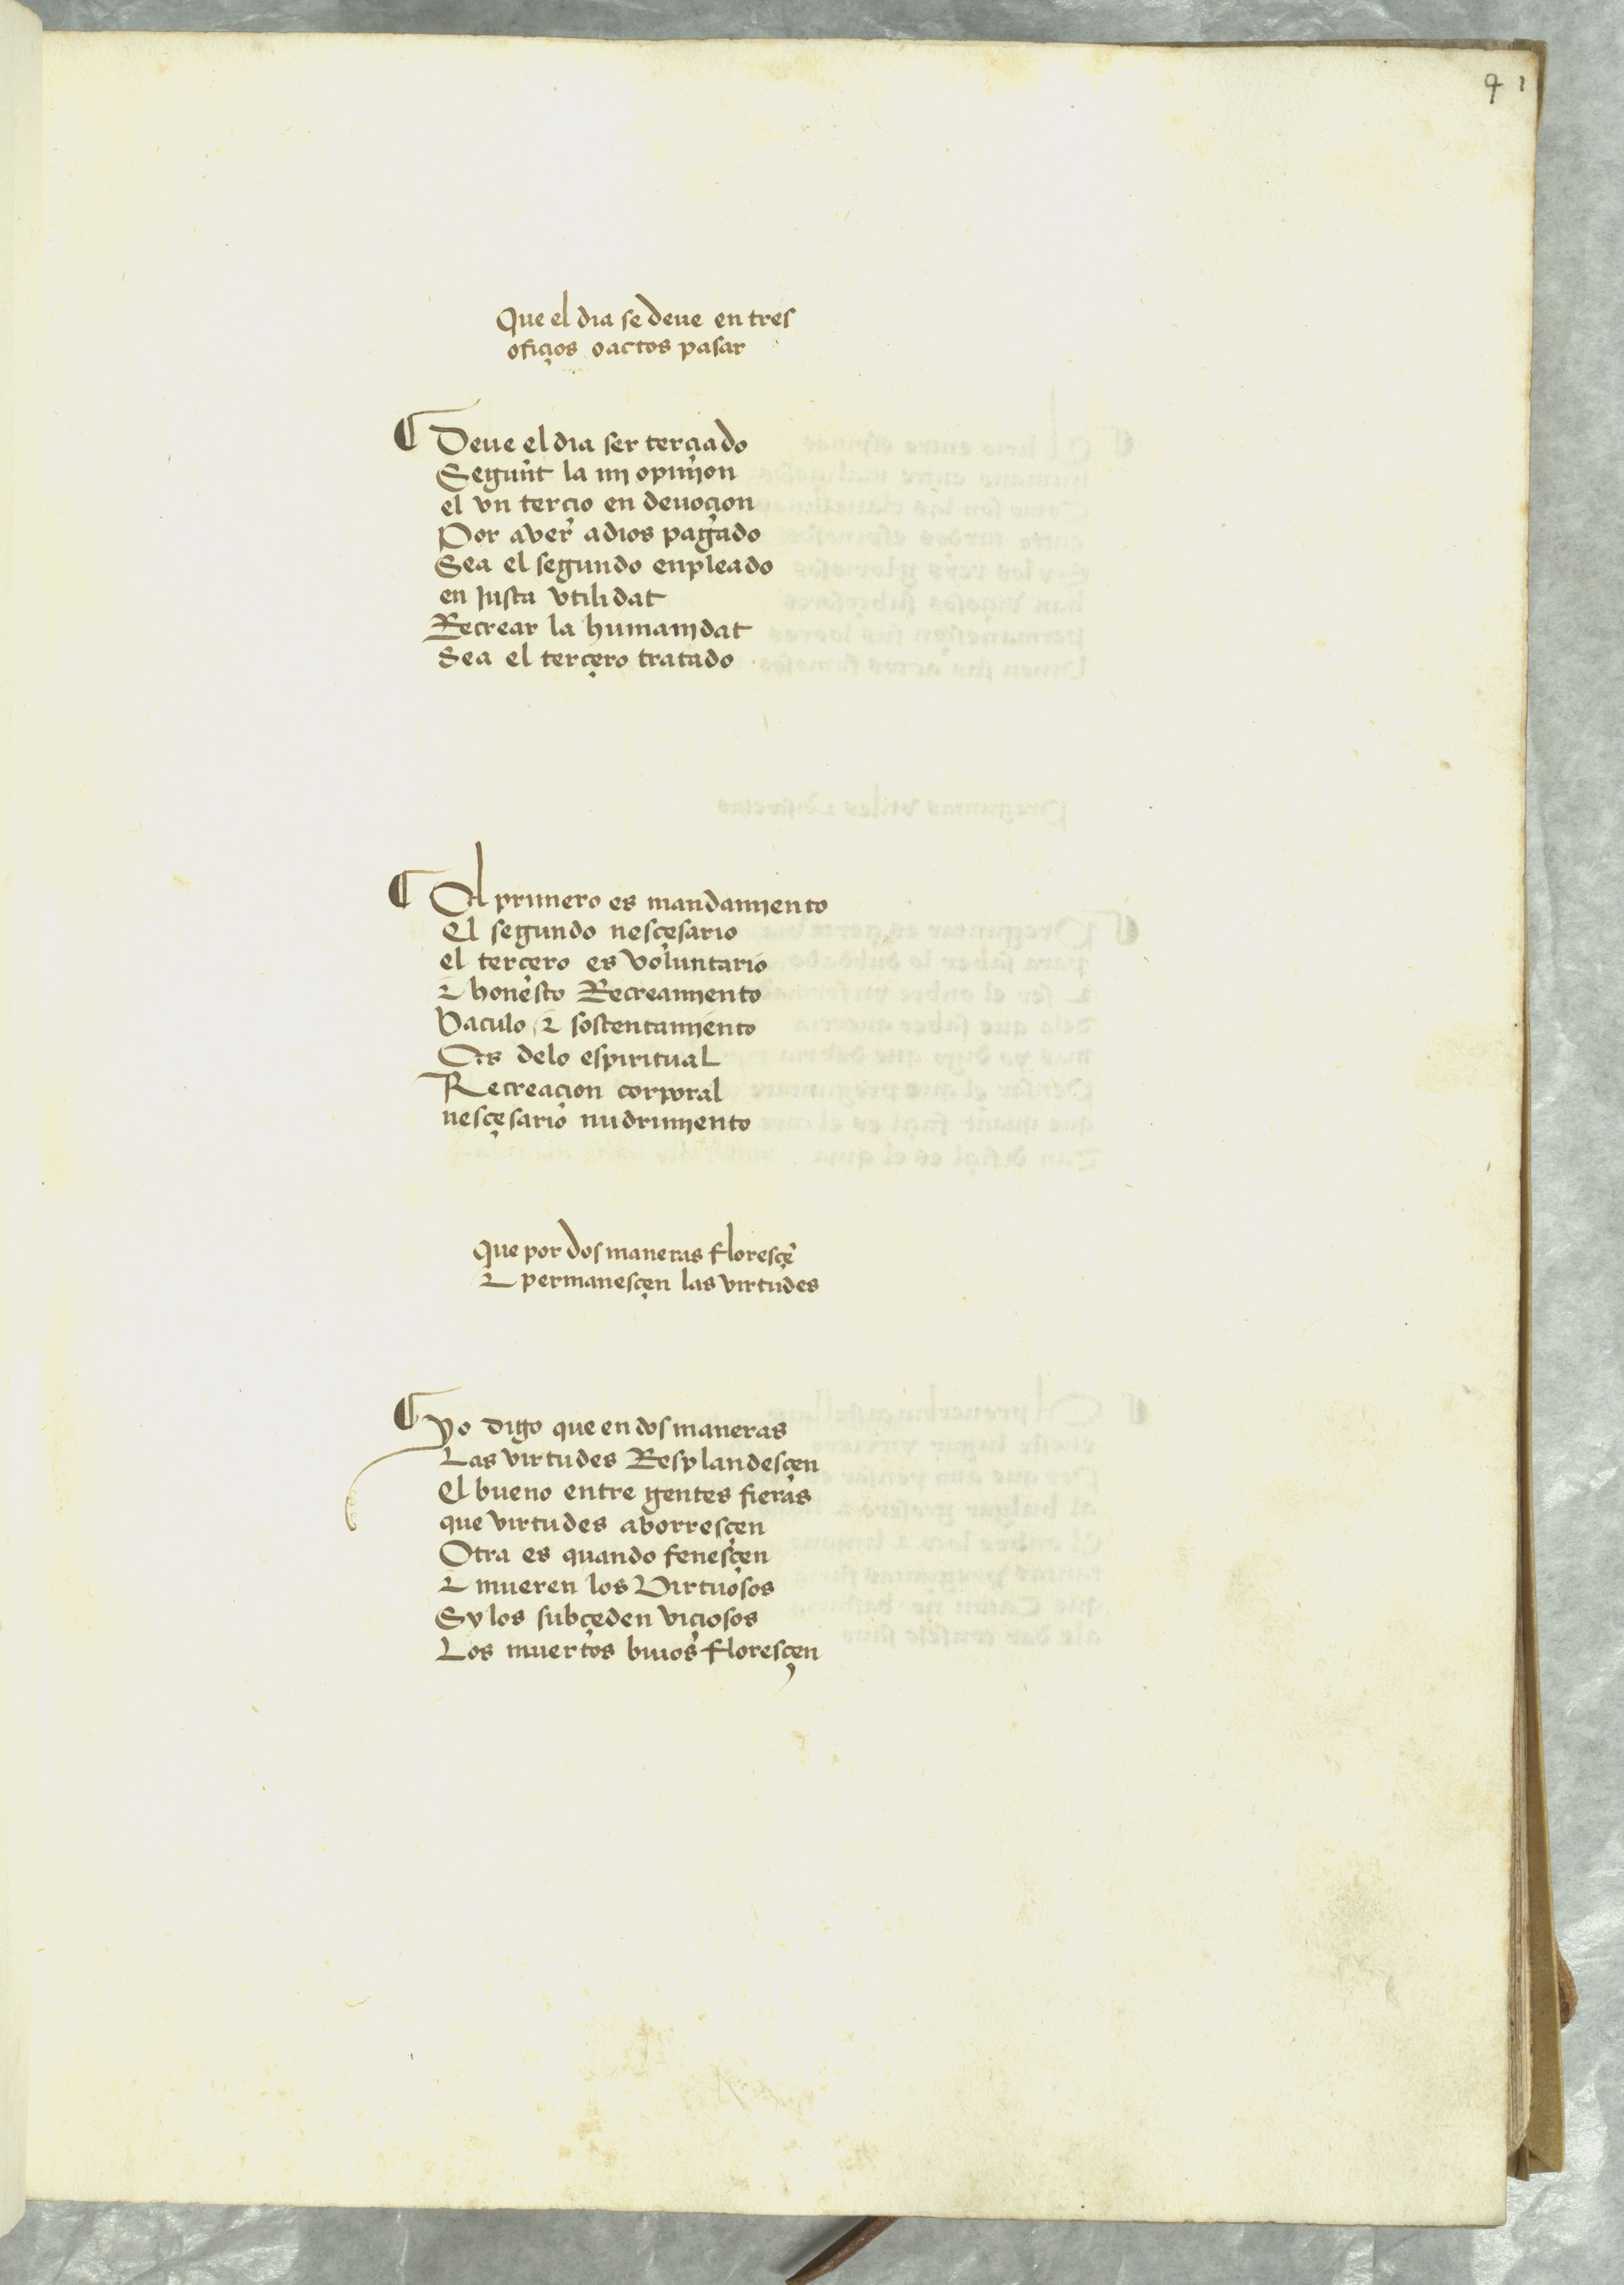 91
Que el dia se deue en tres
ofiçios o actos pasar
¶ Deue el dia ser terçiado
Segunt la mj opinjon
el vn tercio en deuoçion
Por aver adios pagado
Sea el segundo enpleado
en Justa vtilidat
Recrear la humanjdat
Sea el terçero tratado
¶ El primero es mandamjento
El segundo nesçesario
el tercero es voluntario
⁊ honesto Recreamjento
Baculo ⁊ sostentamjento
Es delo espiritual
Recreaçion corporal
nesçesario nudrimjento
Que por dos maneras floresçē
⁊ permanesçen las virtudes
¶ yo digo que en dos maneras
Las virtudes Resplandesçen
El bueno entre gentes fieras
que virtudes aborresçen
Otra es quando fenesçen
⁊ mueren los Virtuosos
Sy los subçeden viçiosos
Los muertos biuos floresçen